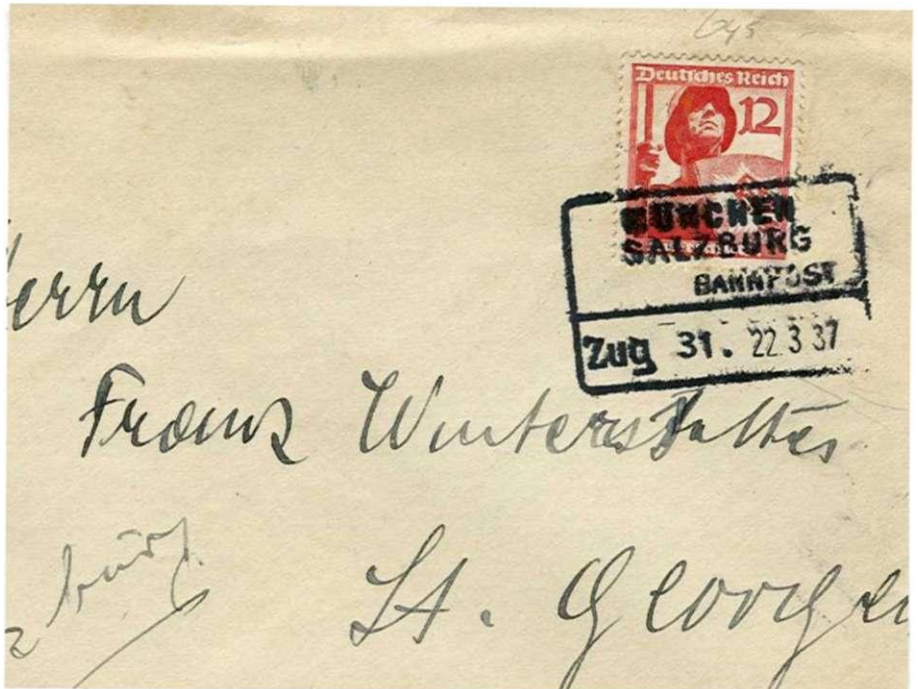 645
Deutsches Reich
12
MÜNCHEN
SALZBURG
BAHNPOST
Zug 31. 22 3 37
Herrn
Franz Winterstaltes
burg
St. Georgen